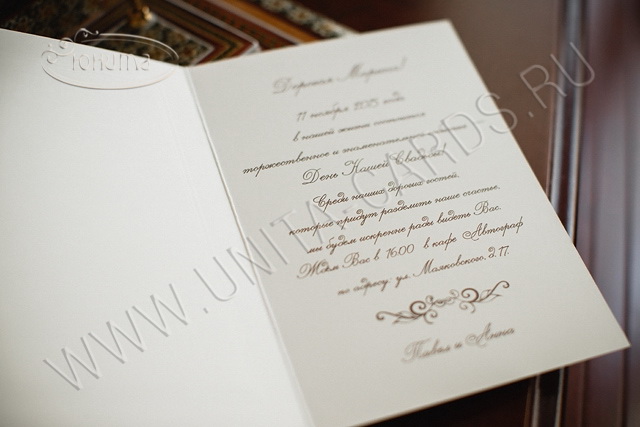 Юнита
WWW.UNITA-CARDS.RU
Дорогая Марина!
77 ноября 2015 года
в нашей жизни состоится
торжественное и знаменательное
День Нашей Свадьбы!
Среди наших дорогих гостей,
которые придут разделить наше счастье,
мы будем искренне рады видеть Вас.
Ждем Вас в 16.00 в кафе Автограф
по адресу: ул. Маяковского, д. 77.
Павел и Анна